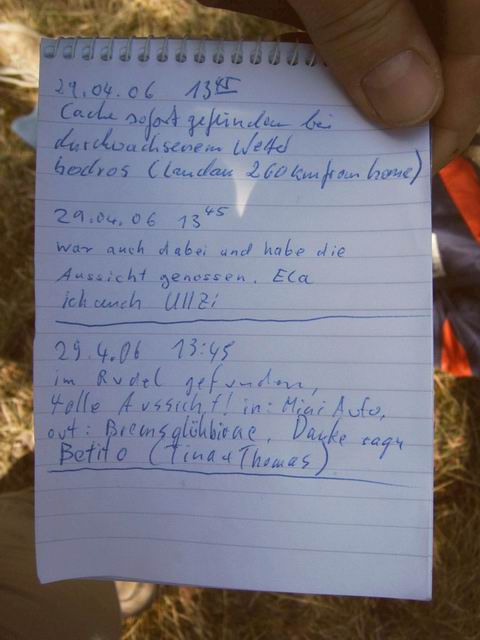 29.04.06 13 45
Cache sofort gefunden bei
durchwachsenem Wetter
bodros (Landau 260km from home)
29.04.06 13 45
war auch dabei und habe die
Aussicht genossen. Ela
ich auch Ulli
29.4.06 13:45
im Rudel gefunden,
tolle Aussicht! in: Mini Auto,
out: Bremsglühbirne, Danke sagn
Betito (Tina + Thomas)